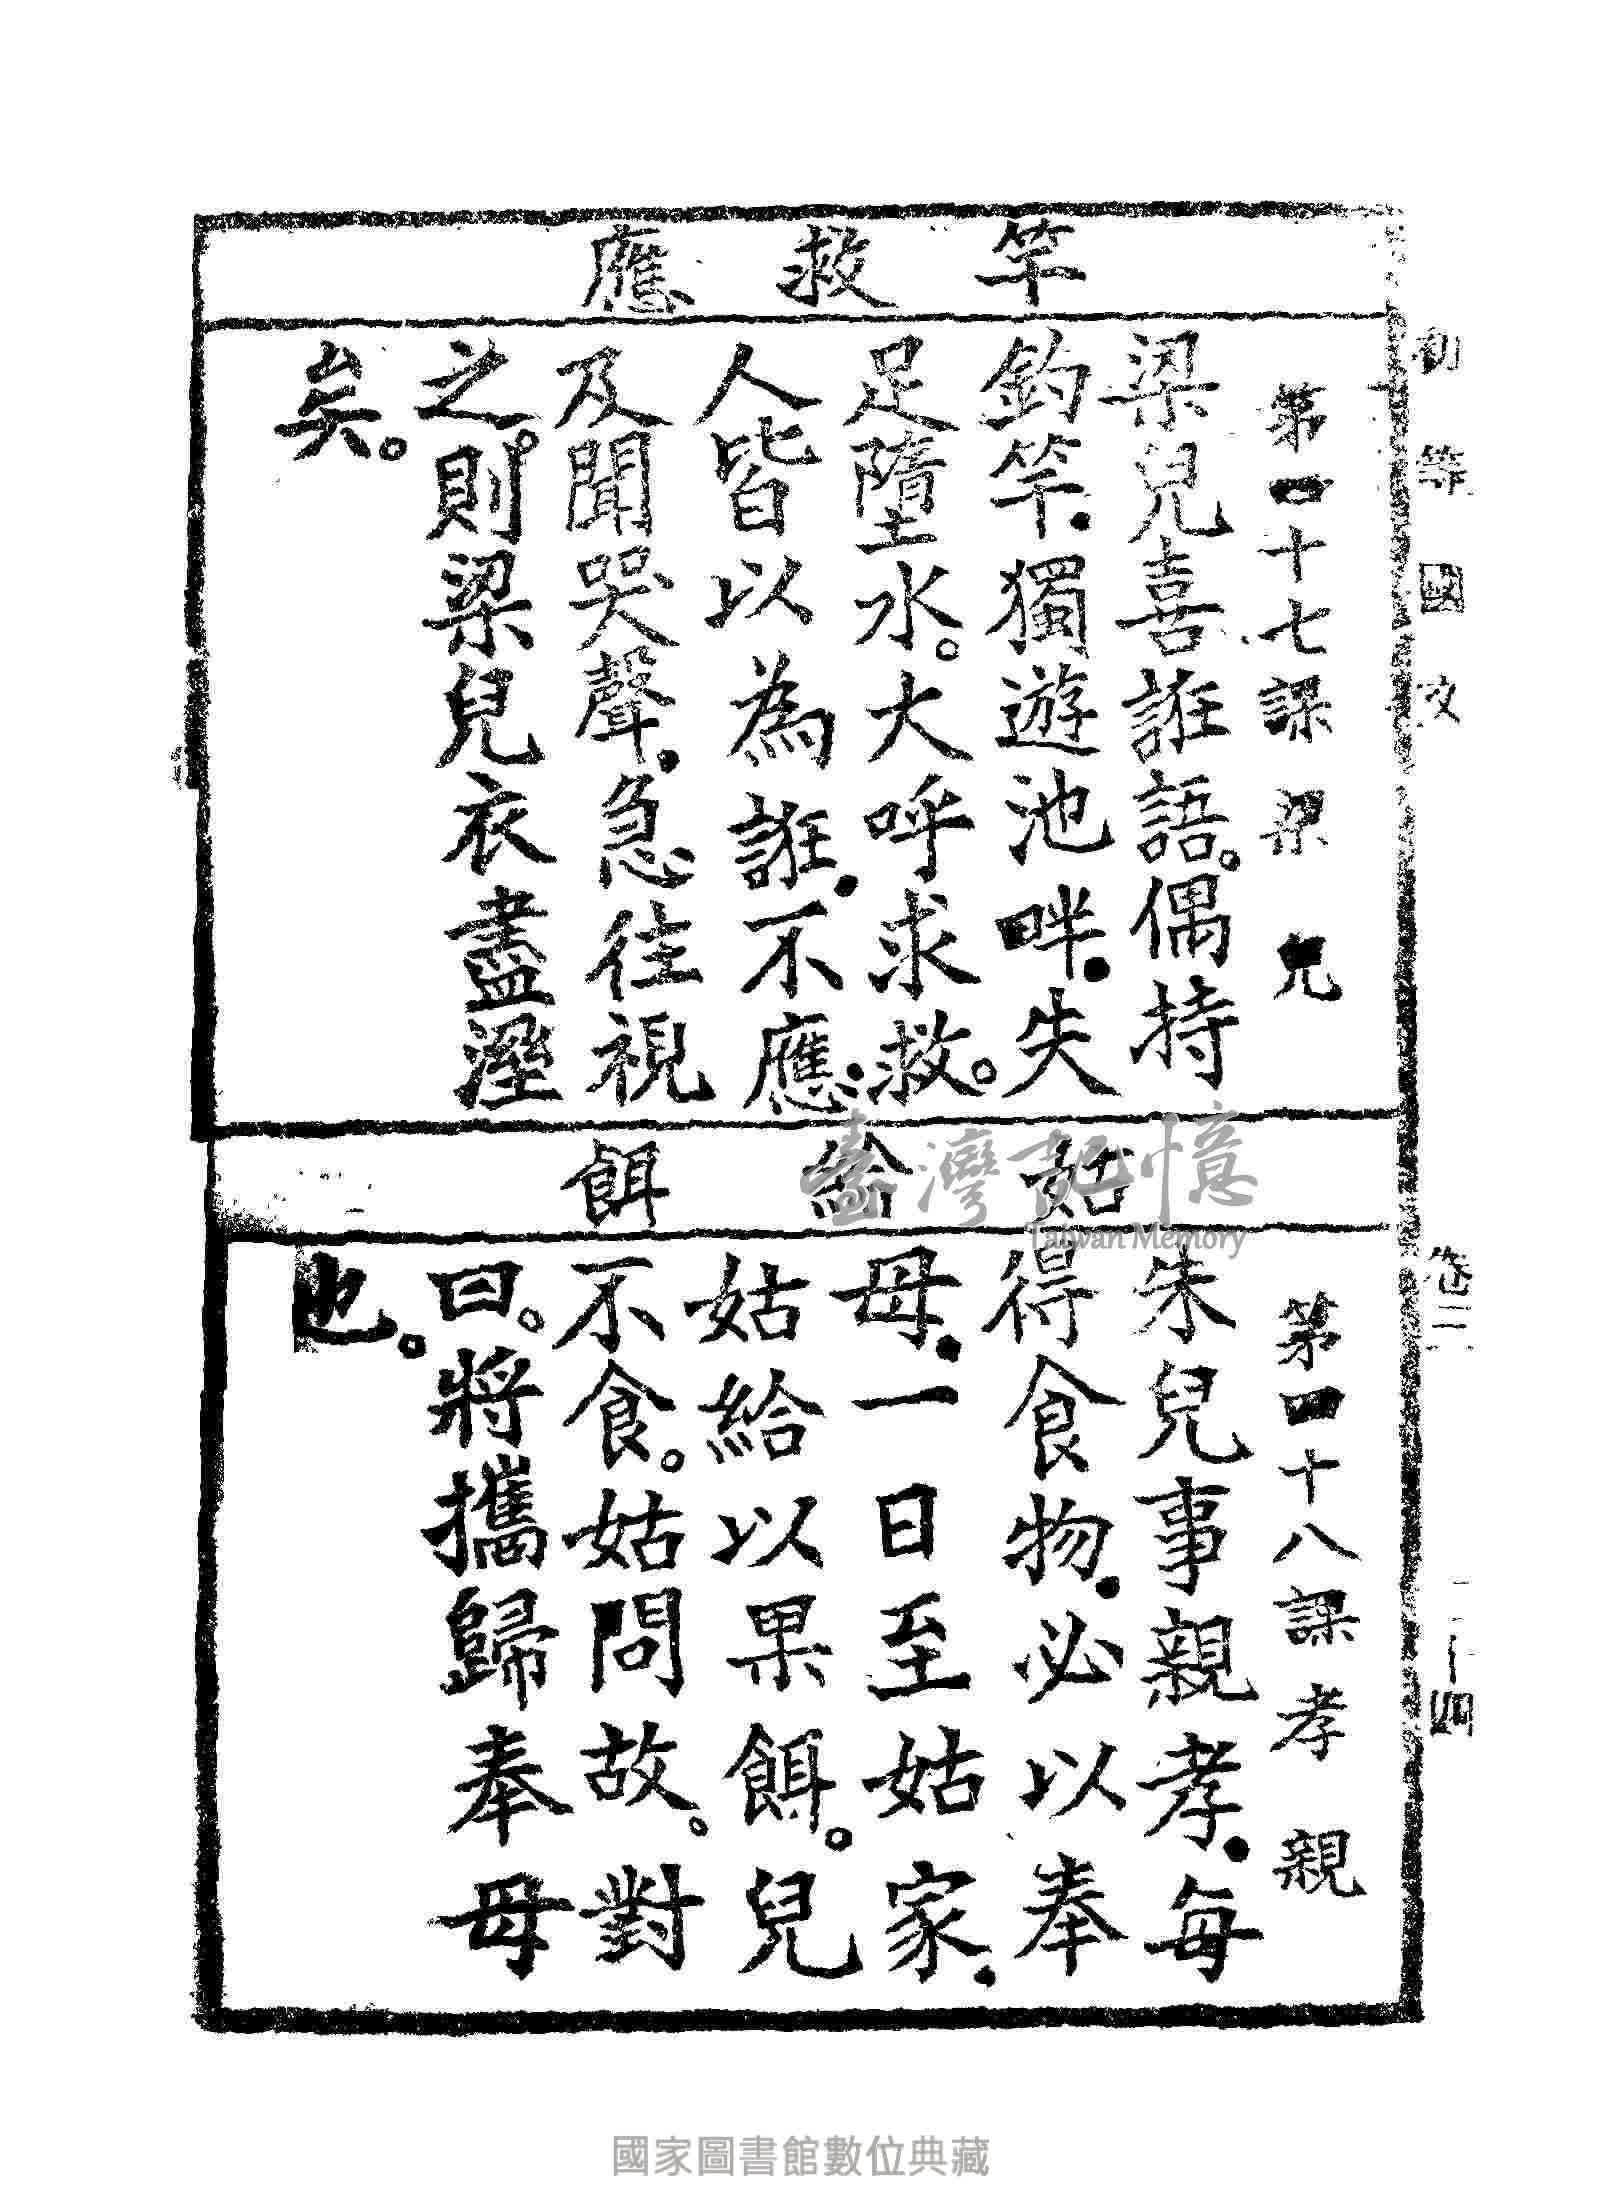 初等國文
卷二
二十四
竿救應
第四十七課 梁兒
梁兒喜誑語。偶持
釣竿.獨遊池畔.失
足墮水。大呼求救。
人皆以為誑.不應.
及聞哭聲.急往視
之。則梁兒衣盡溼
矣。
姑給餌
第四十八課 孝親
朱兒事親孝.每
得食物.必以奉
母.一日至姑家.
姑給以果餌。兒
不食。姑問故。對
曰。將攜歸奉母
也。
臺灣記憶
Taiwan Memory
國家圖書館數位典藏